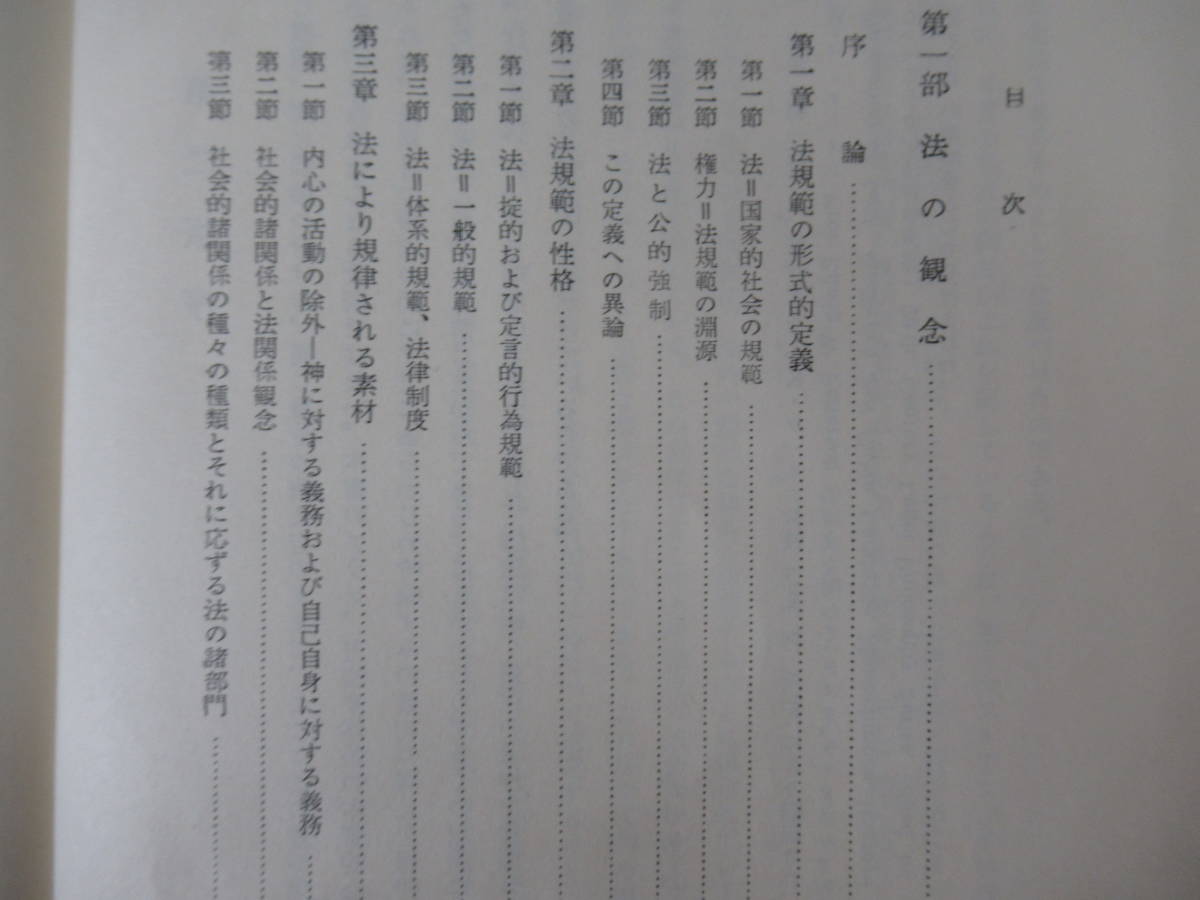 目次
第一部 法の観念
序論
第一章 法規範の形式的定義
第一節 法＝国家的社会の規範
第二節 権力＝法規範の淵源
第三節 法と公的強制
第四節 この定義への異論
第二章 法規範の性格
第一節 法＝掟的および定言的行為規範
第二節 法＝一般的規範
第三節 法＝体系的規範、法律制度
第三章 法により規律される素材
第一節 内心の活動の除外—神に対する義務および自己自身に対する義務
第二節 社会的諸関係と法関係観念
第三節 社会的諸関係の種々の種類とそれに応ずる法の諸部門